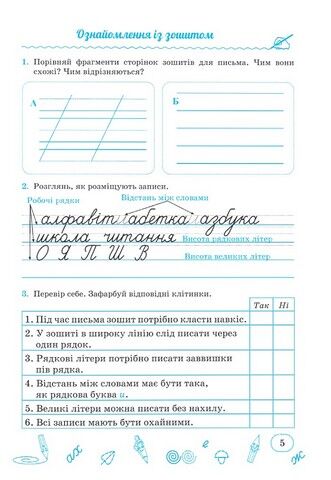 Ознайомлення із зошитом
1. Порівняй фрагменти сторінок зошитів для письма. Чим вони
схожі? Чим відрізняються?
А
Б
2. Розглянь, як розміщують записи.
Робочі рядки
Відстань між словами
алфавіт абетка азбука
школа читання
Висота рядкових літер
О Я П Ш В
Висота великих літер
3. Перевір себе. Зафарбуй відповідні клітинки.
Так Ні
1. Під час письма зошит потрібно класти навкіс.
2. У зошиті в широку лінію слід писати через
один рядок.
3. Рядкові літери потрібно писати заввишки
пів рядка.
4. Відстань між словами має бути така,
як рядкова буква и.
5. Великі літери можна писати без нахилу.
6. Всі записи мають бути охайними.
5
ах
е
ж